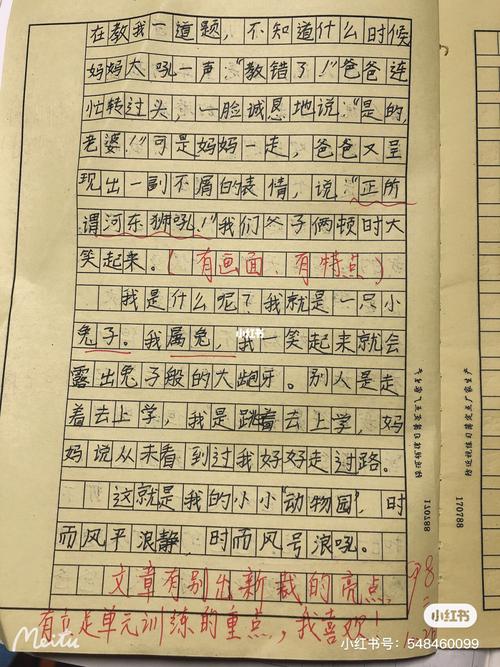 在教我一道题，不知道什么时候
妈妈大吼一声："教错了！"爸爸连
忙转过头，一脸诚恳地说："是的，
老婆！"可是妈妈一走，爸爸又呈
现出一副不屑的表情，说："正所
谓河东狮吼！"我们父子俩顿时大
笑起来。（有画面、有特点）
我是什么呢？我就是一只小
兔子。我属兔，我一笑起来就会
露出兔子般的大龅牙。别人是走
着去上学，我是跳着去上学，妈
妈说从未看到过我好好走过路。
这就是我的小小"动物园"，时
而风平浪静，时而风号浪吼。
文章有别出新裁的亮点，
有立足单元训练的重点，我喜欢！
98
小红书
170788
170788
Meitu
小红书
小红书号：548460099